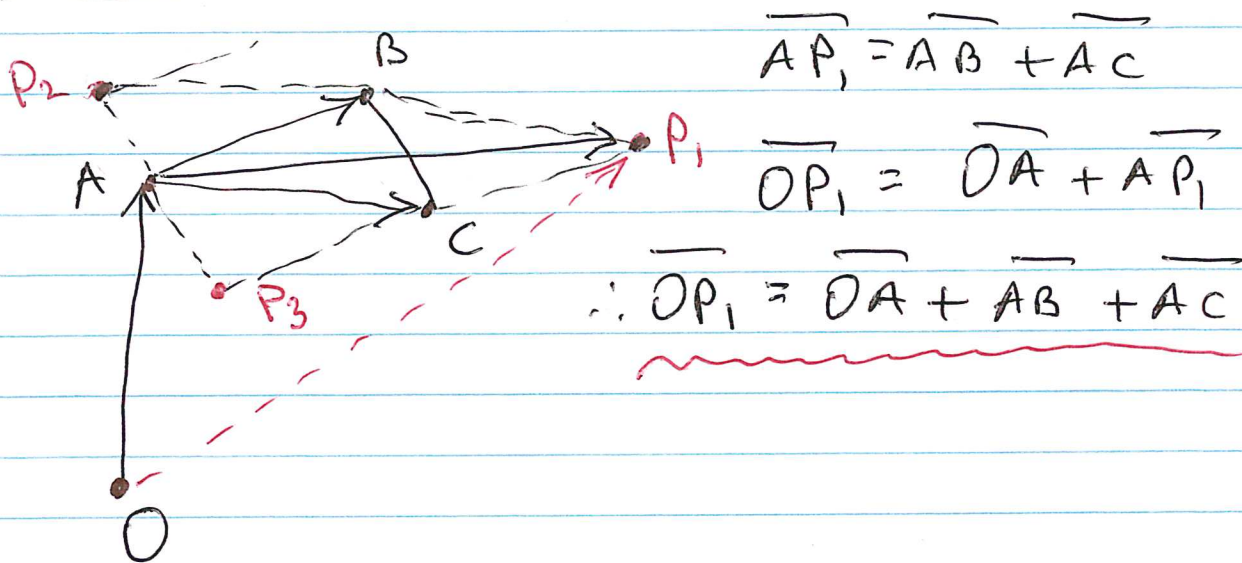 B
P₂
A
C
P₁
P₃
O
A̅P̅₁̅ = A̅B̅ + A̅C̅
O̅P̅₁̅ = O̅A̅ + A̅P̅₁̅
∴ O̅P̅₁̅ = O̅A̅ + A̅B̅ + A̅C̅